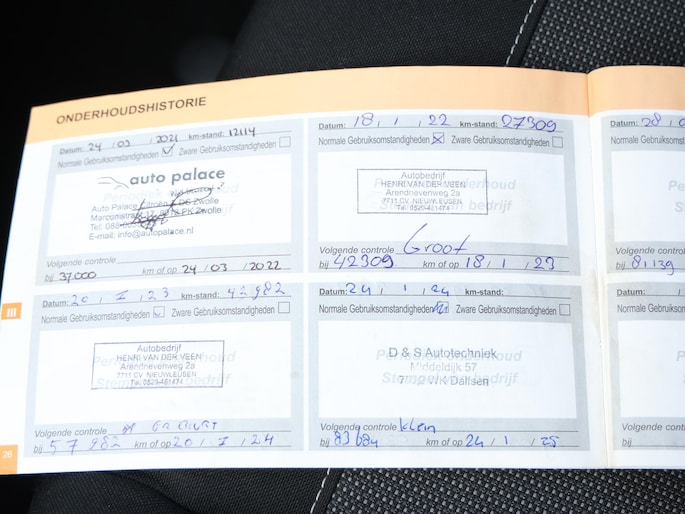 ONDERHOUDSHISTORIE
Datum: 24 / 03 / 2021 km-stand: 12114
Normale Gebruiksomstandigheden Zware Gebruiksomstandigheden
auto palace
Auto Palace Citroën DS Zwolle
E-mail: info@autopalace.nl
Volgende controle
bij 37.000 km of op 24 / 03 / 2022
Datum: 18 / 1 / 22 km-stand: 27309
Normale Gebruiksomstandigheden Zware Gebruiksomstandigheden
Autobedrijf
HENRI VAN DER VEEN
Arendnevenweg 2a
7711 CV NIEUWLEUSEN
Tel. 0529-481474
Volgende controle Groot
bij 42309 km of op 18 / 1 / 23
Datum: 20 / I / 23 km-stand: 42982
Normale Gebruiksomstandigheden Zware Gebruiksomstandigheden
Autobedrijf
HENRI VAN DER VEEN
Arendnevenweg 2a
7711 CV NIEUWLEUSEN
Tel. 0529-481474
Volgende controle
bij 57982 km of op 20 / I / 24
Datum: 24 / 1 / 24 km-stand:
Normale Gebruiksomstandigheden Zware Gebruiksomstandigheden
D & S Autotechniek
Middeldijk 57
Dalfsen
Volgende controle Klein
bij 83684 km of op 24 / 1 / 25
Datum: 28
Normale
Volgende
bij 81139
Datum:
Normale
Volgende
bij
III
26